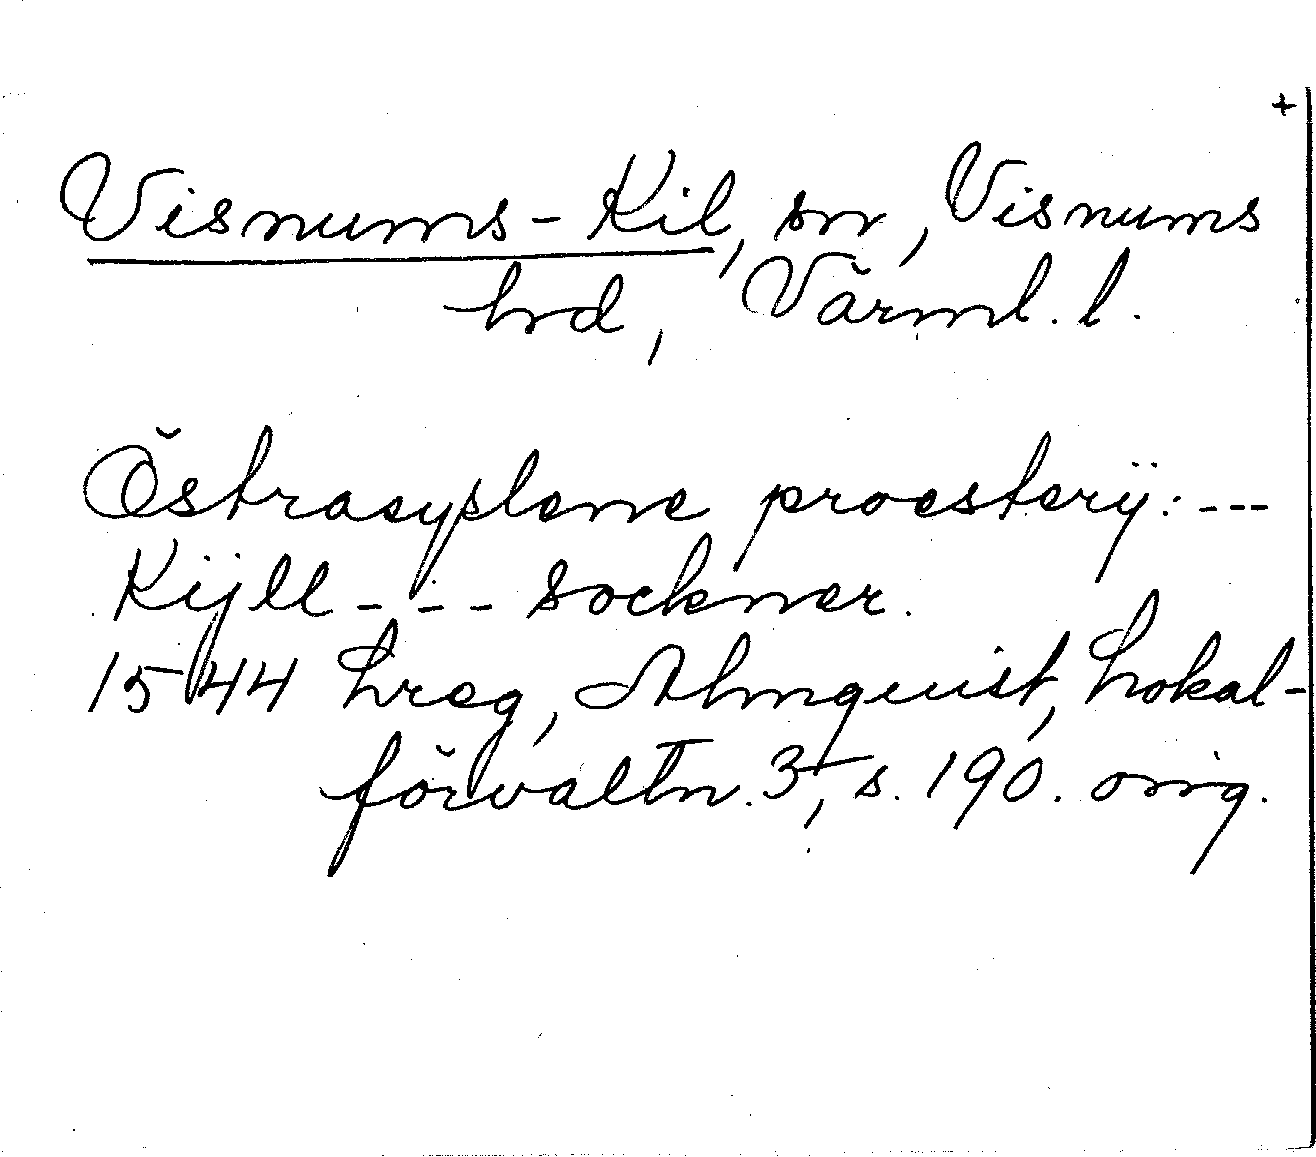 +
Visnums-Kil, sn, Visnums
hd, Värml. l.
Östrasyslene proesterij: ---
Kijll - - - sockner.
1544 Lreg, Almquist, Lokal-
förvaltn. 3, s. 190. orig.